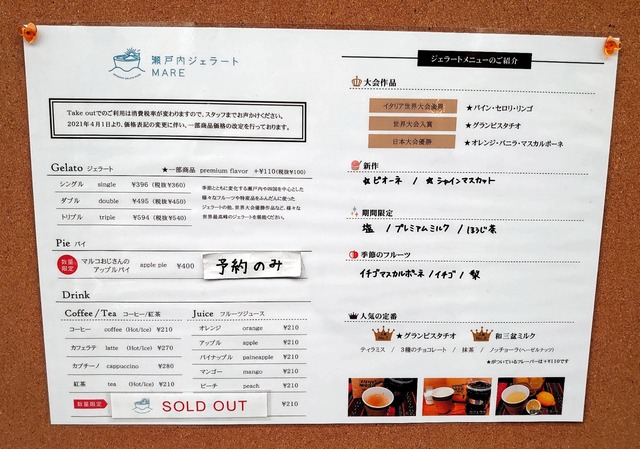 瀬戸内ジェラート
MARE
Take outでのご利用は消費税率が変わりますので、スタッフまでお声かけください。
2021年4月1日より、価格表記の変更に伴い、一部商品価格の改定を行っております。
Gelato ジェラート ★一部商品 premium flavor +¥110(税抜¥100)
シングル single ¥396 (税抜¥360)
ダブル double ¥495 (税抜¥450)
トリプル triple ¥594 (税抜¥540)
季節とともに変化する瀬戸内や四国を中心とした
様々なフルーツや特産品をふんだんに使った
ジェラートの他、世界大会優勝作品など、様々な
世界最高峰のジェラートを堪能ください。
Pie パイ
数量限定
マルコおじさんの
アップルパイ apple pie ¥400
予約のみ
Drink
Coffee/Tea コーヒー/紅茶
コーヒー coffee (Hot/Ice) ¥210
カフェラテ latte (Hot/Ice) ¥270
カプチーノ cappuccino ¥280
紅茶 tea (Hot/Ice) ¥210
Juice フルーツジュース
オレンジ orange ¥210
アップル apple ¥210
パイナップル paineapple ¥210
マンゴー mango ¥210
ピーチ peach ¥210
数量限定 SOLD OUT ¥210
ジェラートメニューのご紹介
大会作品
イタリア世界大会優勝 ★パイン・セロリ・リンゴ
世界大会入賞 ★グランピスタチオ
日本大会優勝 ★オレンジ・バニラ・マスカルポーネ
新作
★ピオーネ / ★シャインマスカット
期間限定
塩 / プレミアムミルク / ほうじ茶
季節のフルーツ
イチゴマスカルポーネ / イチゴ / 梨
人気の定番
★グランピスタチオ 和三盆ミルク
ティラミス / 3種のチョコレート / 抹茶 / ノッチョーラ(ヘーゼルナッツ)
★がついているフレーバーは+¥110です